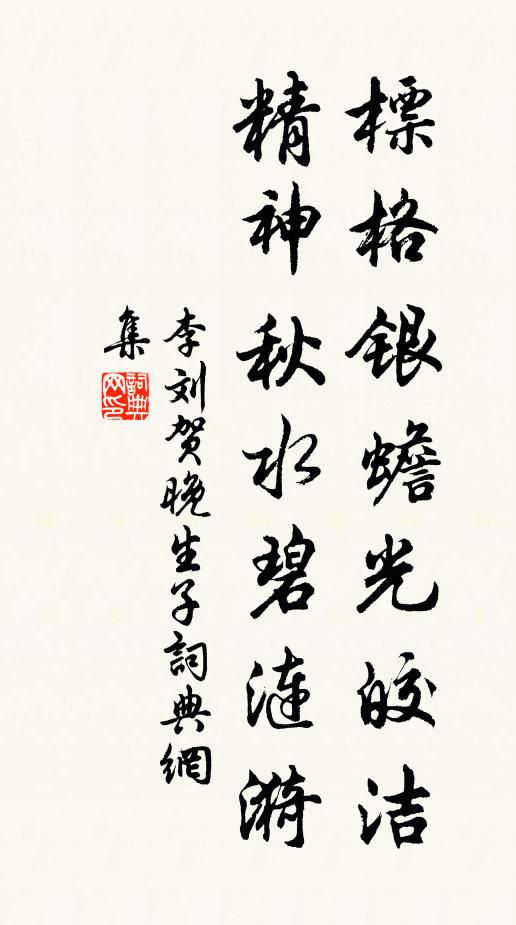 標格银蟾光皎洁
精神秋水碧涟漪
李刘贺晚生子詞典網
集
詞典
网印